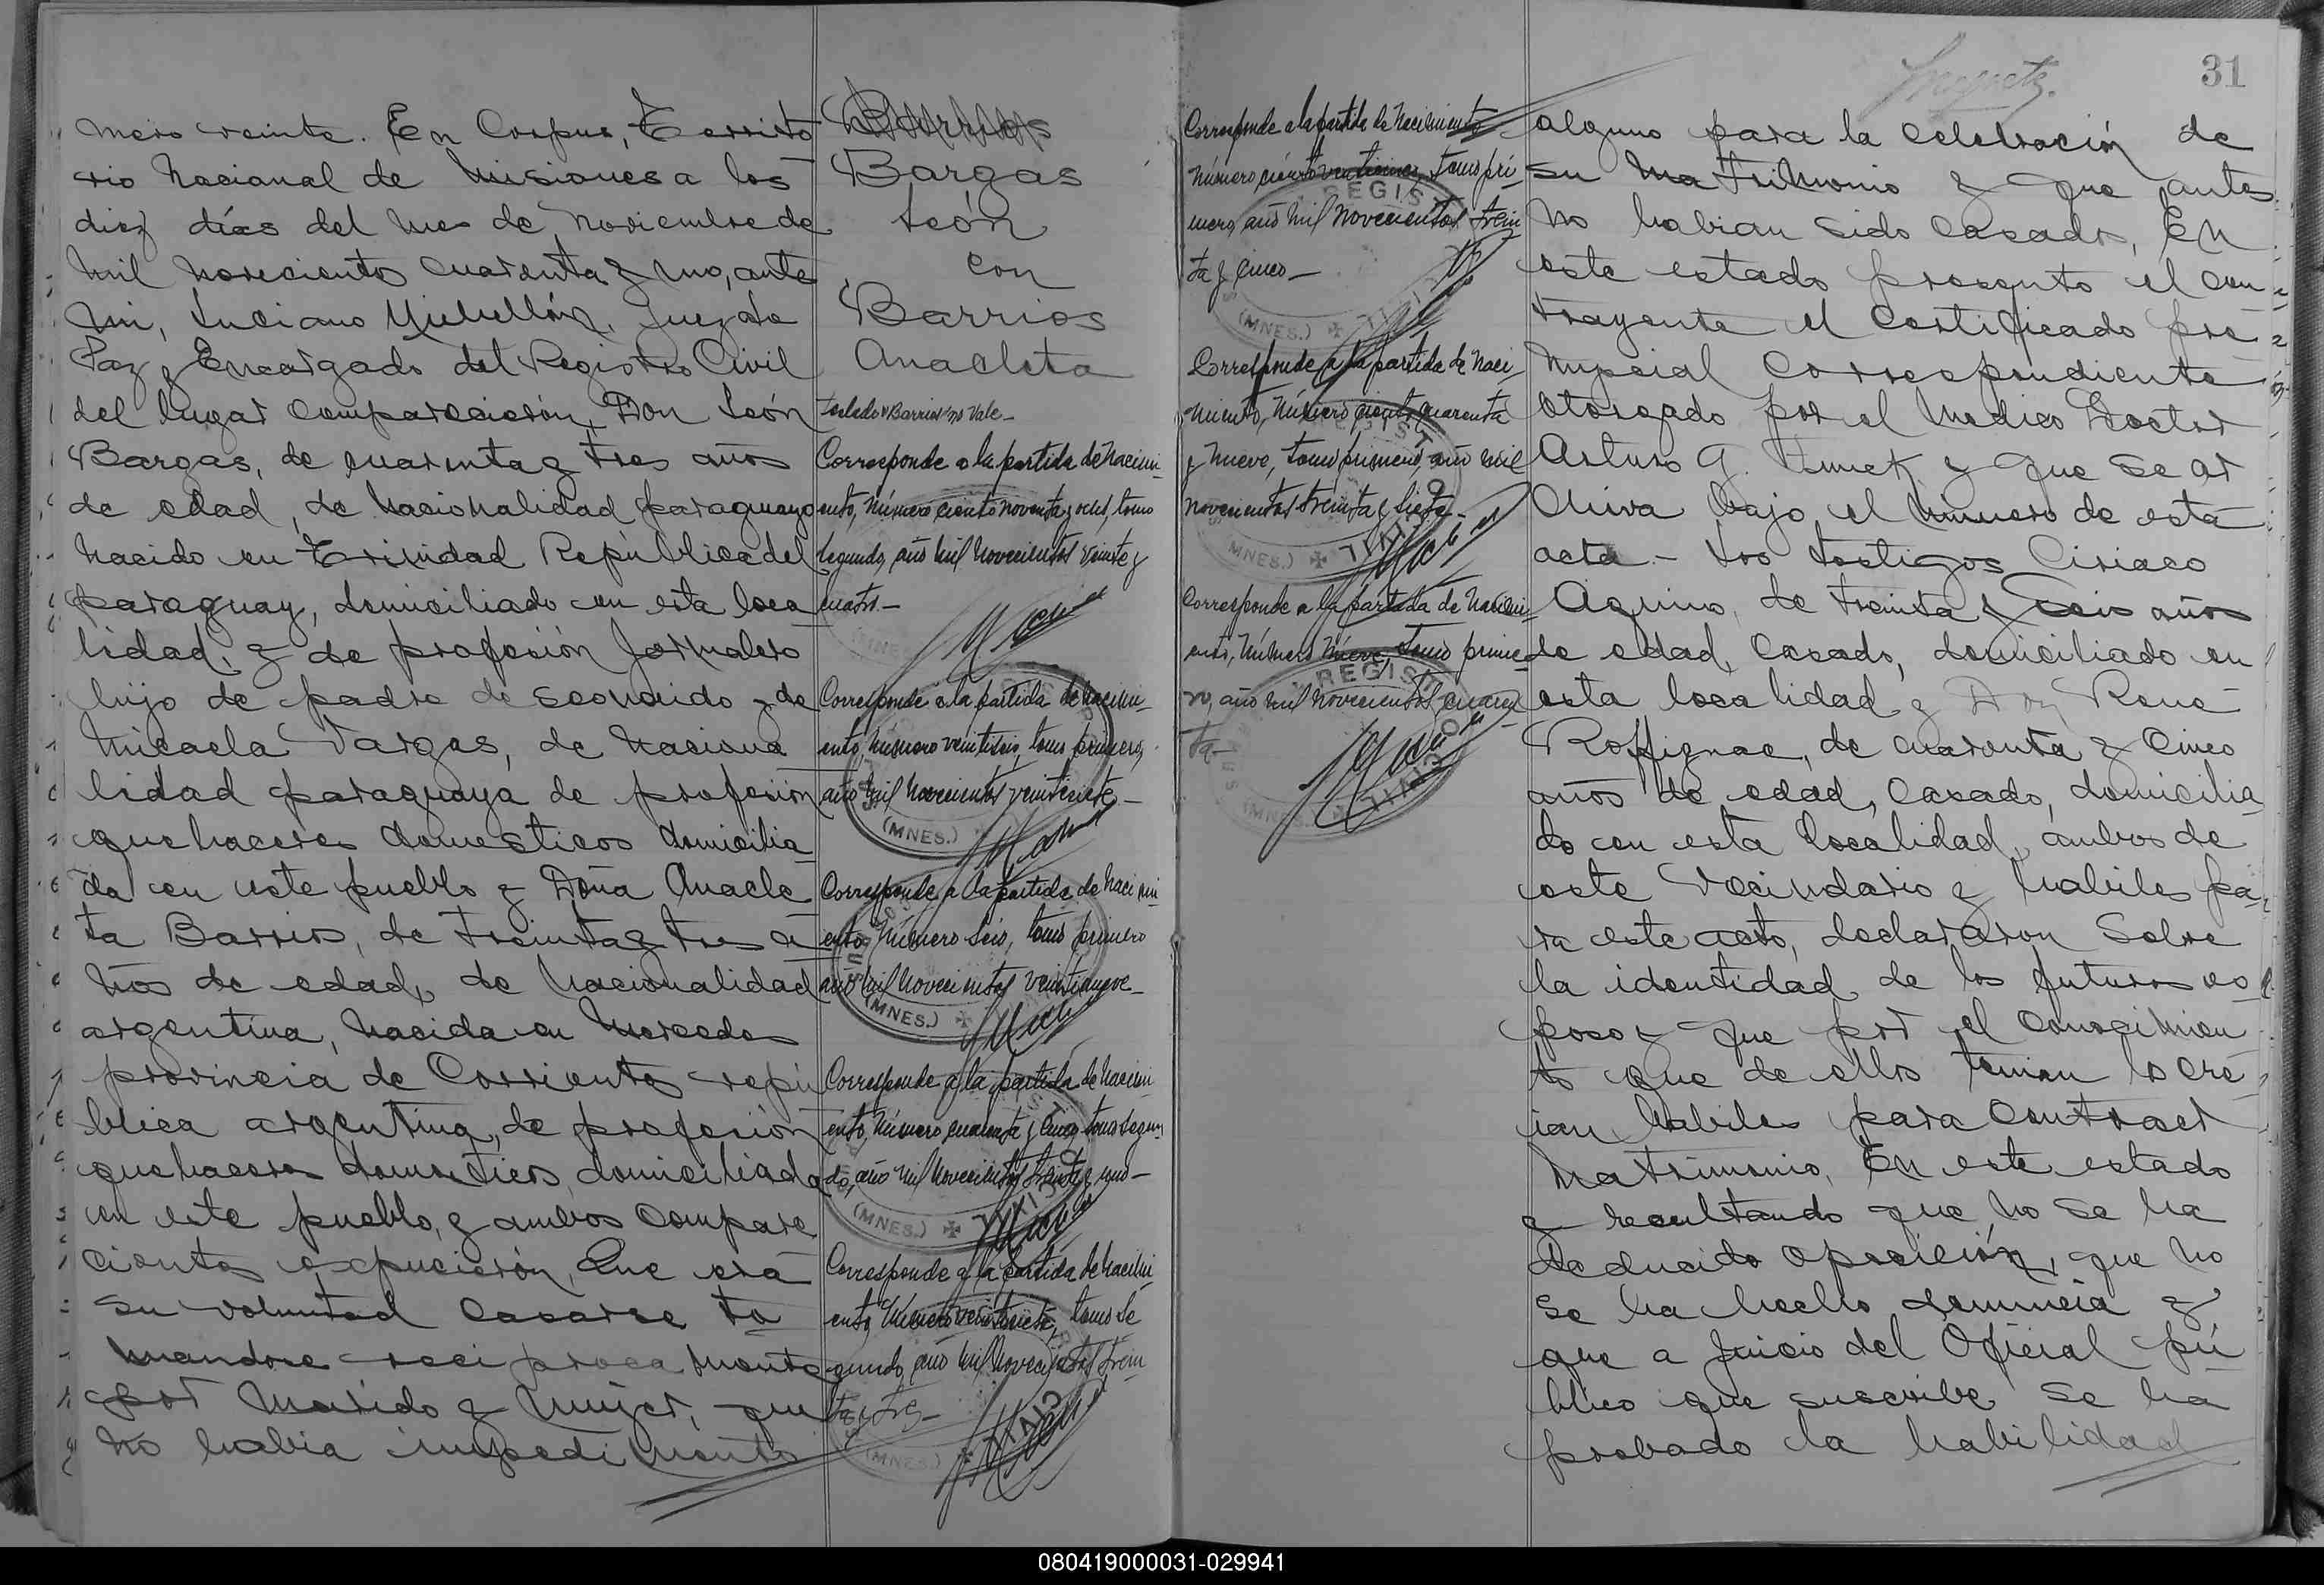 mero veinte. En Corpus, Territo
rio Nacional de Misiones a los
diez días del mes de Noviembre de
mil novecientos cuarenta y uno, ante
mi, Luciano Juez de
Paz y Encargado del Registro Civil
del lugar comparecieron, Don León
Bargas, de cuarenta y tres años
de edad, de nacionalidad paraguayo
nacido en Trinidad República del
paraguay, domiciliado en esta loca
lidad, y de profesión Jornalero
hijo de padre desconocido y de
Micaela Vargas, de naciona
lidad paraguaya de profesion
quehaceres domesticos domicilia
da en este pueblo y Doña Anacle
ta Barrios, de treinta y tres a
ños de edad, de nacionalidad
argentina, nacida en Mercedes
provincia de Corrientes repú
blica argentina, de profesión
quehaceres domesticos, domiciliada
en este pueblo, y ambos compare
cientes expusieron, Que era
su voluntad casarse to
mandose reciprocamente
por Marido y Mujer, que
no habia impedimento
Barrios
Bargas
León
con
Barrios
Anacleta
testado "Barrios" no vale-
Corresponde a la partida de nacimi-
ento, número ciento noventa y ocho, tomo
segundo, año mil novecientos veinte y
cuatro.-
Corresponde a la partida de nacimi-
ento, número veintiseis, tomo primero,
año mil novecientos veintisiete-
Corresponde a la partida de nacimi-
ento, número seis, tomo primero
año mil novecientos veintinueve-
(MNES.)
Corresponde a la partida de nacimi
ento, número cuarenta y cinco, tomo segun
do, año mil novecientos treinta y uno-
(MNES.)
Corresponde a la partida de nacimi
ento, número veintisiete, tomo se
gundo, año mil novecientos trein
ta y tres-
(MNES.)
Corresponde a la partida de nacimiento
número ciento veinticinco, tomo pri-
mero, año mil novecientos trein
ta y cinco-
(MNES.)
Corresponde a la partida de naci-
miento, número ciento cuarenta
y nueve, tomo primero, año mil
novecientos treinta y siete-
(MNES.)
Corresponde a la partida de nacimi-
ento, número nueve, tomo prime-
ro, año mil novecientos cuaren
ta-
REGIST
(MNES.)
31
alguno para la celebración de
su matrimonio y que antes
no habian sido casados, En
este estado presento el con
trayente el Certificado pre
nupcial correspondiente
otorgado por el medico Doctor
Arturo G. y que se ar
chiva bajo el número de esta
acta.- Los testigos Ciriaco
Aquino, de treinta y seis años
de edad, casado, domiciliado en
esta localidad y Don René
Roffignac, de cuarenta y cinco
años de edad, casado, domicilia
do en esta localidad, ambos de
este vecindario y habiles pa-
ra este acto, declararon Sobre
la identidad de los futuros es
posos y que por el conocimien
to que de ellos tenian los cre
ian habiles para contraer
matrimonio, En este estado
y resultando que no se ha
deducido oposición, que no
se ha hecho denuncia y
que a juicio del Oficial pú
blico que suscribe se ha
probado la habilidad
080419000031-029941